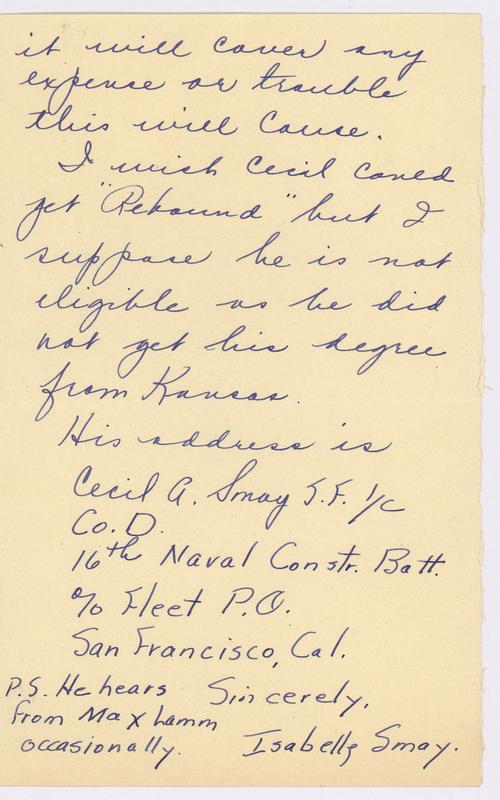 it will cover any
expense or trouble
this will cause.
I wish Cecil could
get "Rebound" but I
suppose he is not
eligible as he did
not get his degree
from Kansas.
His address is
Cecil A. Smay S.F. 1/c
Co. D.
16th Naval Constr. Batt.
℅ Fleet P.O.
San Francisco, Cal.
P.S. He hears
from Max Lamm
occasionally.
Sincerely,
Isabelle Smay.